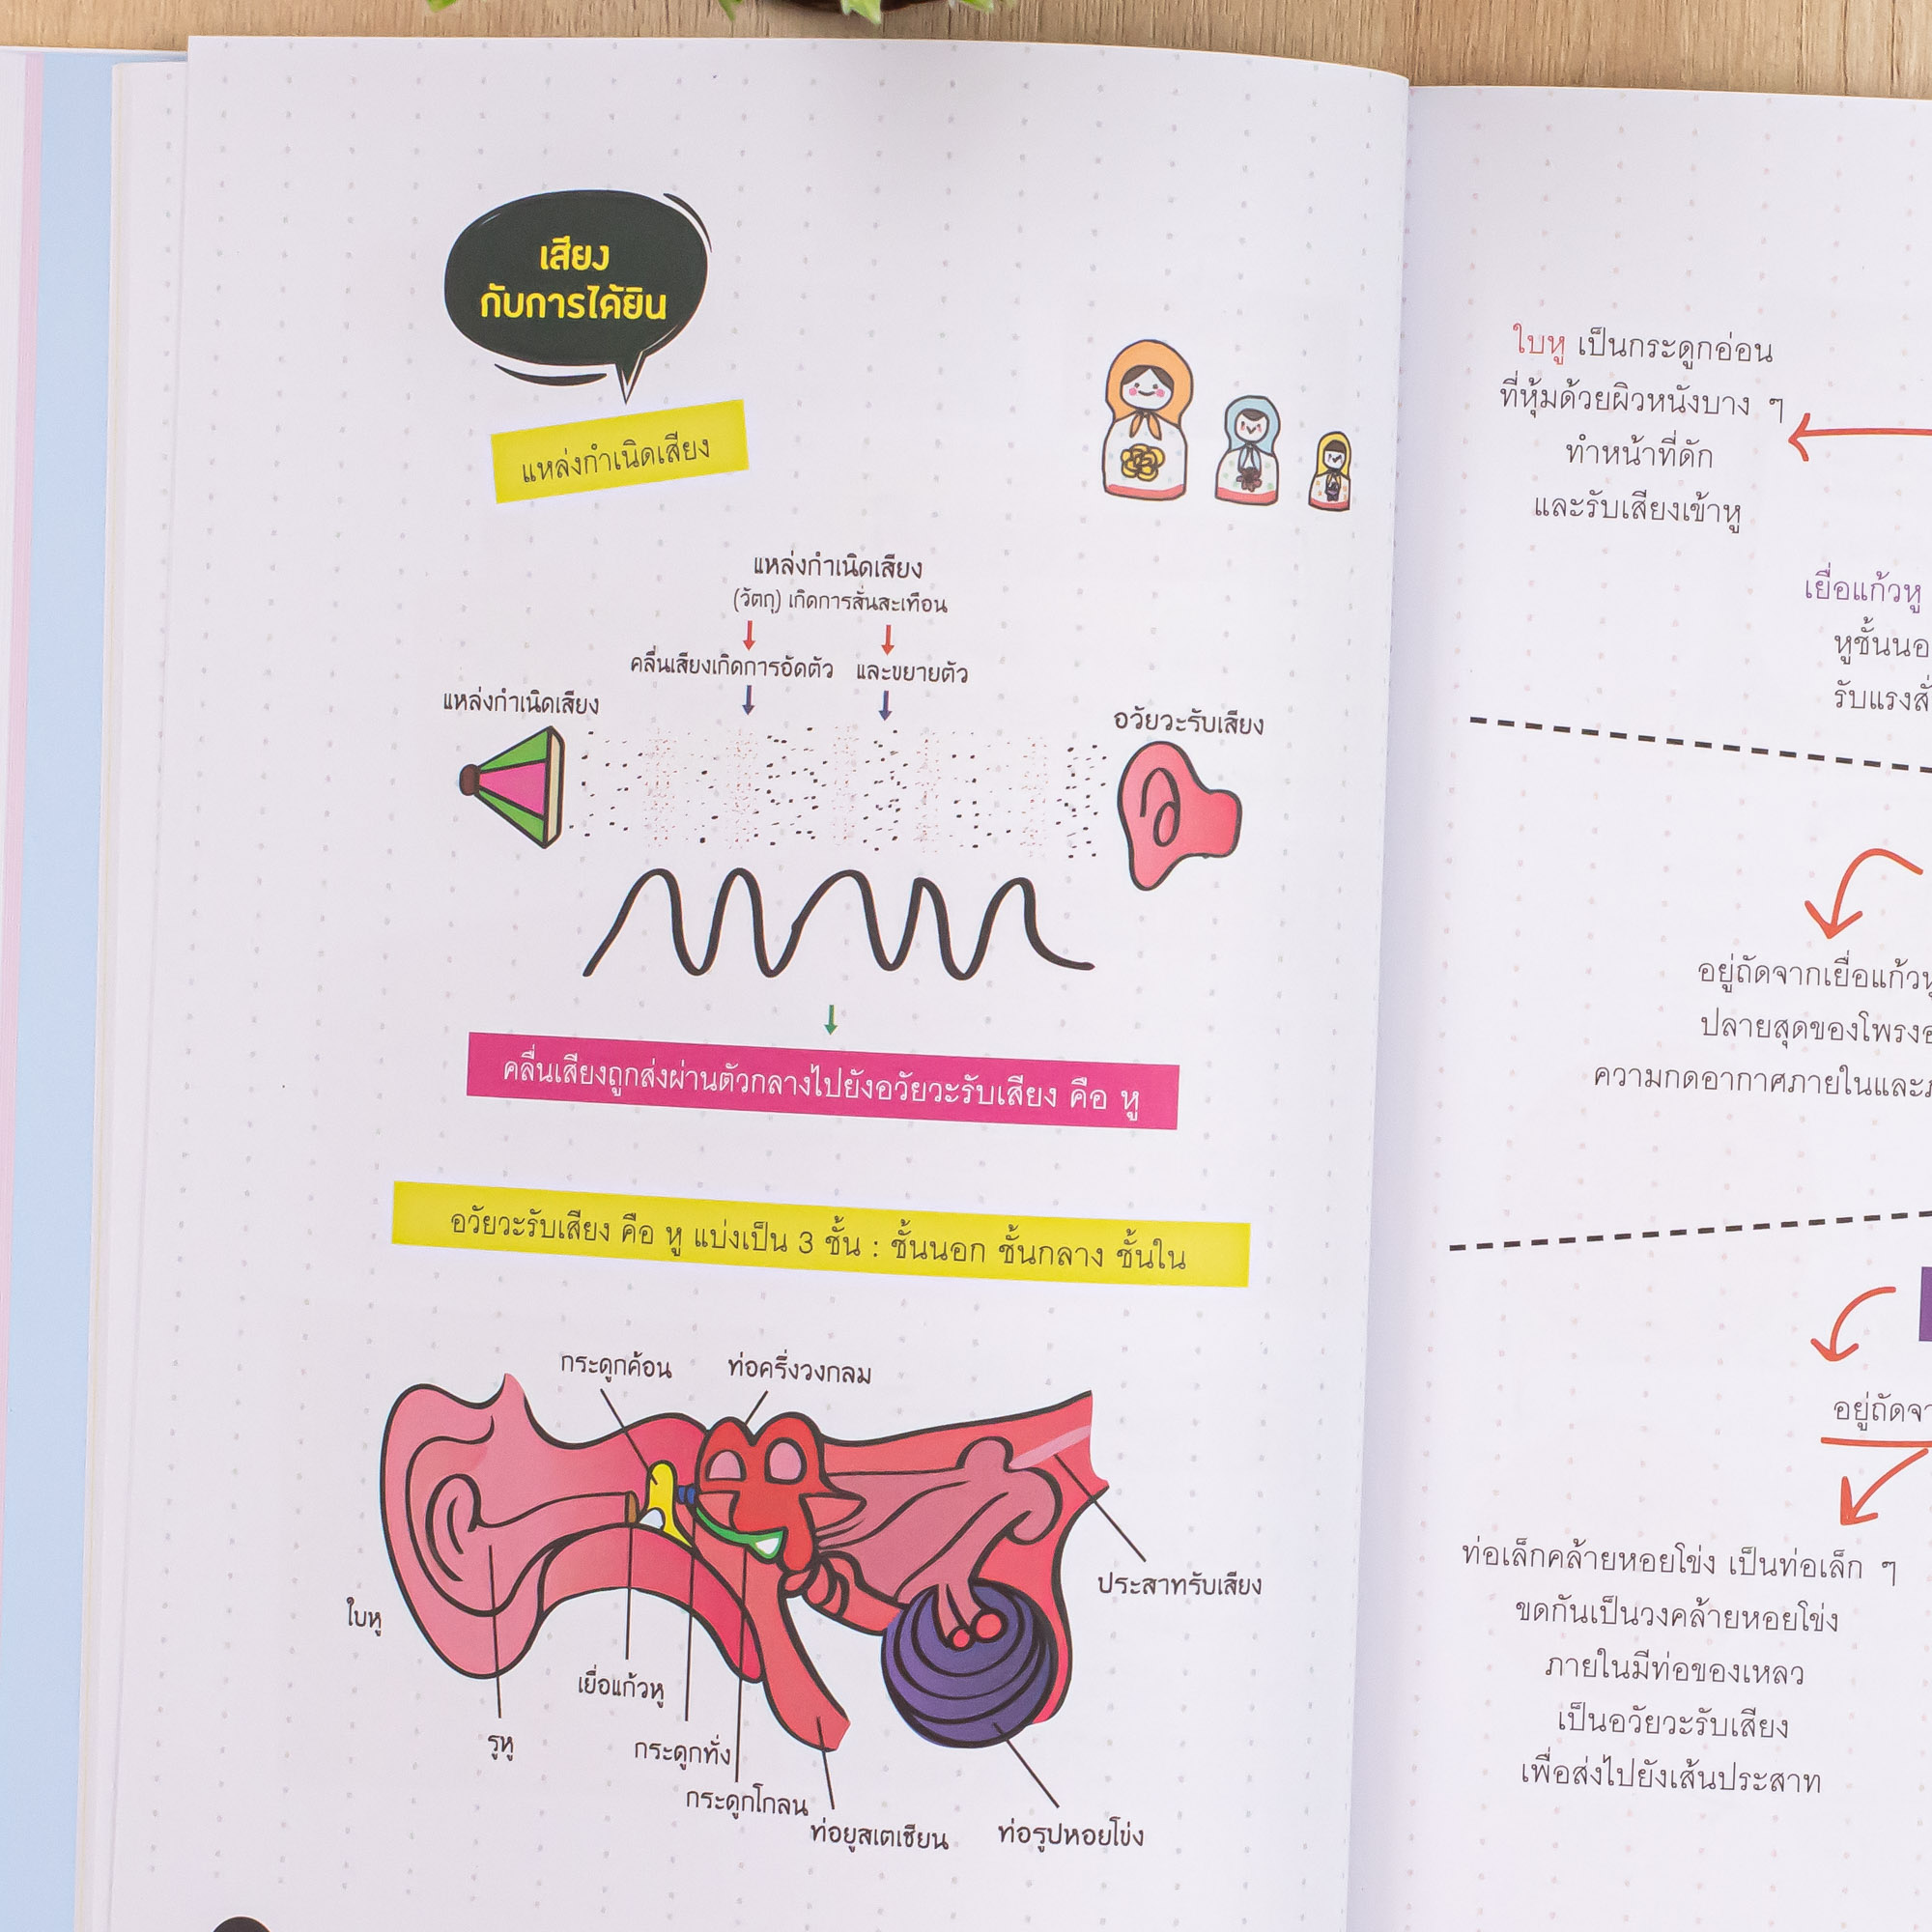 เสียง
กับการได้ยิน
แหล่งกำเนิดเสียง
แหล่งกำเนิดเสียง
(วัตถุ) เกิดการสั่นสะเทือน
คลื่นเสียงเกิดการอัดตัว และขยายตัว
แหล่งกำเนิดเสียง
อวัยวะรับเสียง
คลื่นเสียงถูกส่งผ่านตัวกลางไปยังอวัยวะรับเสียง คือ หู
อวัยวะรับเสียง คือ หู แบ่งเป็น 3 ชั้น : ชั้นนอก ชั้นกลาง ชั้นใน
กระดูกค้อน
ท่อครึ่งวงกลม
ประสาทรับเสียง
ใบหู
เยื่อแก้วหู
รูหู
กระดูกทั่ง
กระดูกโกลน
ท่อยูสเตเชียน
ท่อรูปหอยโข่ง
ใบหู เป็นกระดูกอ่อน
ที่หุ้มด้วยผิวหนังบาง ๆ
ทำหน้าที่ดัก
และรับเสียงเข้าหู
เยื่อแก้วหู
หูชั้นนอ
รับแรงสั่
อยู่ถัดจากเยื่อแก้วหู
ปลายสุดของโพรงอ
ความกดอากาศภายในและภ
อยู่ถัดจา
ท่อเล็กคล้ายหอยโข่ง เป็นท่อเล็ก ๆ
ขดกันเป็นวงคล้ายหอยโข่ง
ภายในมีท่อของเหลว
เป็นอวัยวะรับเสียง
เพื่อส่งไปยังเส้นประสาท